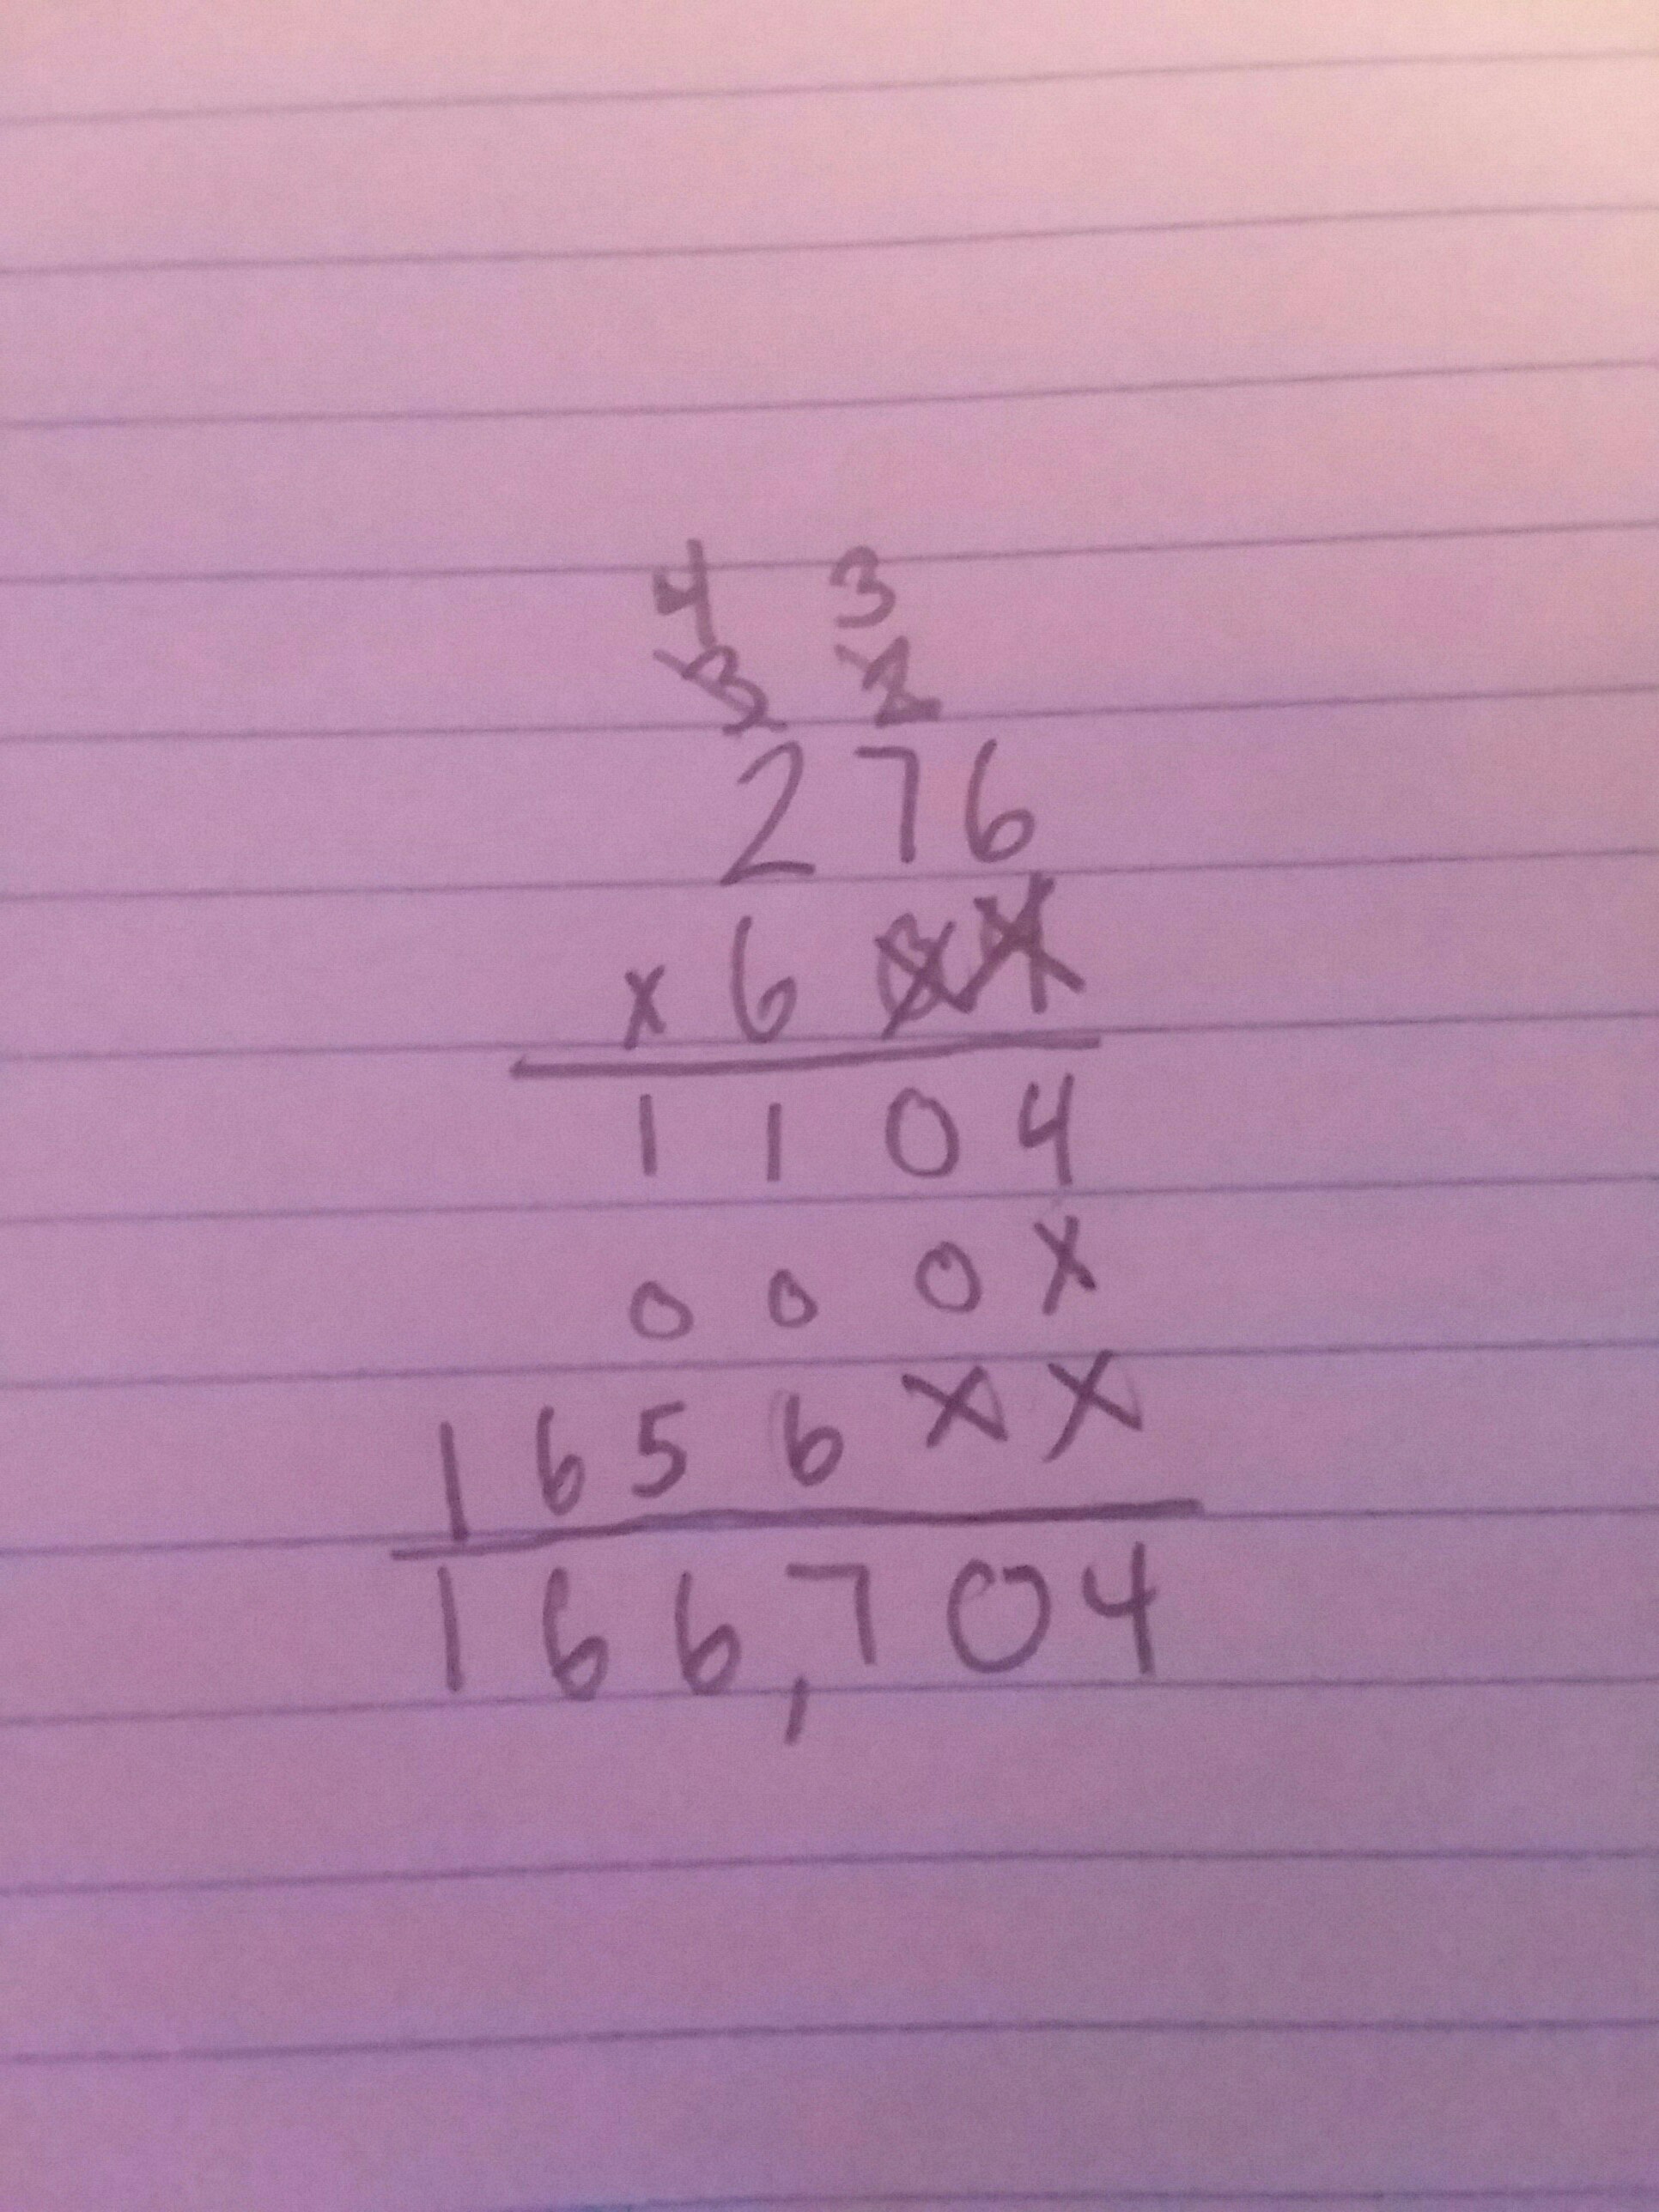 4 3
3 2
276
x 604
1104
000x
1656xx
166,704